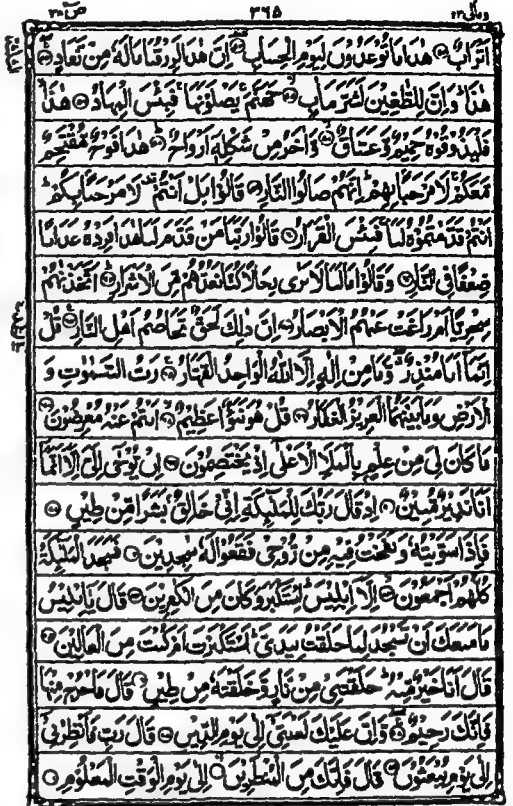 ص ٣٨
٣٦٥
ومالى ٢٣
اَتْرَابٌ ۞ هٰذَا مَا تُوْعَدُوْنَ لِيَوْمِ الْحِسَابِ ۞ اِنَّ هٰذَا لَرِزْقُنَا مَا لَهٗ مِنْ نَّفَادٍ ۞
هٰذَا ؕ وَاِنَّ لِلطّٰغِيْنَ لَشَرَّ مَاٰبٍ ۞ جَهَنَّمَ ۚ يَصْلَوْنَهَا ۚ فَبِئْسَ الْمِهَادُ ۞ هٰذَا ۙ
فَلْيَذُوْقُوْهُ حَمِيْمٌ وَّغَسَّاقٌ ۞ وَّاٰخَرُ مِنْ شَكْلِهٖٓ اَزْوَاجٌ ۞ هٰذَا فَوْجٌ مُّقْتَحِمٌ
مَّعَكُمْ ۚ لَا مَرْحَبًۢا بِهِمْ ؕ اِنَّهُمْ صَالُوا النَّارِ ۞ قَالُوْا بَلْ اَنْتُمْ ۫ لَا مَرْحَبًۢا بِكُمْ ؕ
اَنْتُمْ قَدَّمْتُمُوْهُ لَنَا ۚ فَبِئْسَ الْقَرَارُ ۞ قَالُوْا رَبَّنَا مَنْ قَدَّمَ لَنَا هٰذَا فَزِدْهُ عَذَابًا
ضِعْفًا فِى النَّارِ ۞ وَقَالُوْا مَا لَنَا لَا نَرٰى رِجَالًا كُنَّا نَعُدُّهُمْ مِّنَ الْاَشْرَارِ ۞ اَتَّخَذْنٰهُمْ
سِخْرِيًّا اَمْ زَاغَتْ عَنْهُمُ الْاَبْصَارُ ۞ اِنَّ ذٰلِكَ لَحَقٌّ تَخَاصُمُ اَهْلِ النَّارِ ۞ قُلْ
اِنَّمَآ اَنَا مُنْذِرٌ ۖ وَّمَا مِنْ اِلٰهٍ اِلَّا اللّٰهُ الْوَاحِدُ الْقَهَّارُ ۞ رَبُّ السَّمٰوٰتِ وَ
الْاَرْضِ وَمَا بَيْنَهُمَا الْعَزِيْزُ الْغَفَّارُ ۞ قُلْ هُوَ نَبَؤٌا عَظِيْمٌ ۞ اَنْتُمْ عَنْهُ مُعْرِضُوْنَ ۞
مَا كَانَ لِىَ مِنْ عِلْمٍۢ بِالْمَلَاِ الْاَعْلٰٓى اِذْ يَخْتَصِمُوْنَ ۞ اِنْ يُّوْحٰٓى اِلَىَّ اِلَّآ اَنَّمَآ
اَنَا نَذِيْرٌ مُّبِيْنٌ ۞ اِذْ قَالَ رَبُّكَ لِلْمَلٰٓئِكَةِ اِنِّىْ خَالِقٌۢ بَشَرًا مِّنْ طِيْنٍ ۞
فَاِذَا سَوَّيْتُهٗ وَنَفَخْتُ فِيْهِ مِنْ رُّوْحِىْ فَقَعُوْا لَهٗ سٰجِدِيْنَ ۞ فَسَجَدَ الْمَلٰٓئِكَةُ
كُلُّهُمْ اَجْمَعُوْنَ ۞ اِلَّآ اِبْلِيْسَ ؕ اِسْتَكْبَرَ وَكَانَ مِنَ الْكٰفِرِيْنَ ۞ قَالَ يٰٓاِبْلِيْسُ
مَا مَنَعَكَ اَنْ تَسْجُدَ لِمَا خَلَقْتُ بِيَدَىَّ ؕ اَسْتَكْبَرْتَ اَمْ كُنْتَ مِنَ الْعَالِيْنَ ۞
قَالَ اَنَا خَيْرٌ مِّنْهُ ؕ خَلَقْتَنِىْ مِنْ نَّارٍ وَّخَلَقْتَهٗ مِنْ طِيْنٍ ۞ قَالَ فَاخْرُجْ مِنْهَا
فَاِنَّكَ رَجِيْمٌ ۞ وَّاِنَّ عَلَيْكَ لَعْنَتِىْٓ اِلٰى يَوْمِ الدِّيْنِ ۞ قَالَ رَبِّ فَاَنْظِرْنِىْٓ
اِلٰى يَوْمِ يُبْعَثُوْنَ ۞ قَالَ فَاِنَّكَ مِنَ الْمُنْظَرِيْنَ ۞ اِلٰى يَوْمِ الْوَقْتِ الْمَعْلُوْمِ ۞